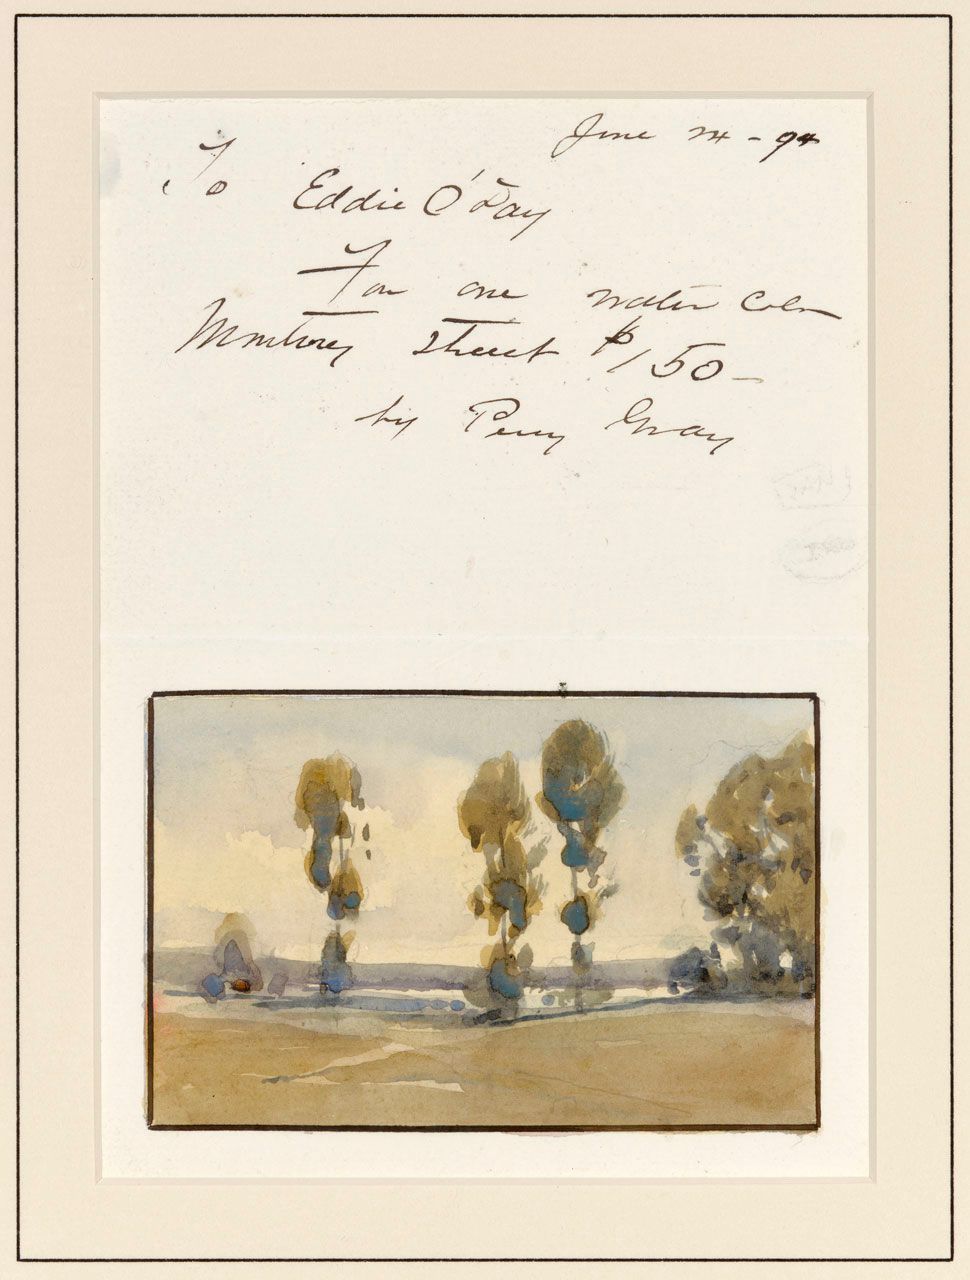 June 24 - 94
To
Eddie O'Day
For one water Color
Monterey Street $150-
by Percy Gray